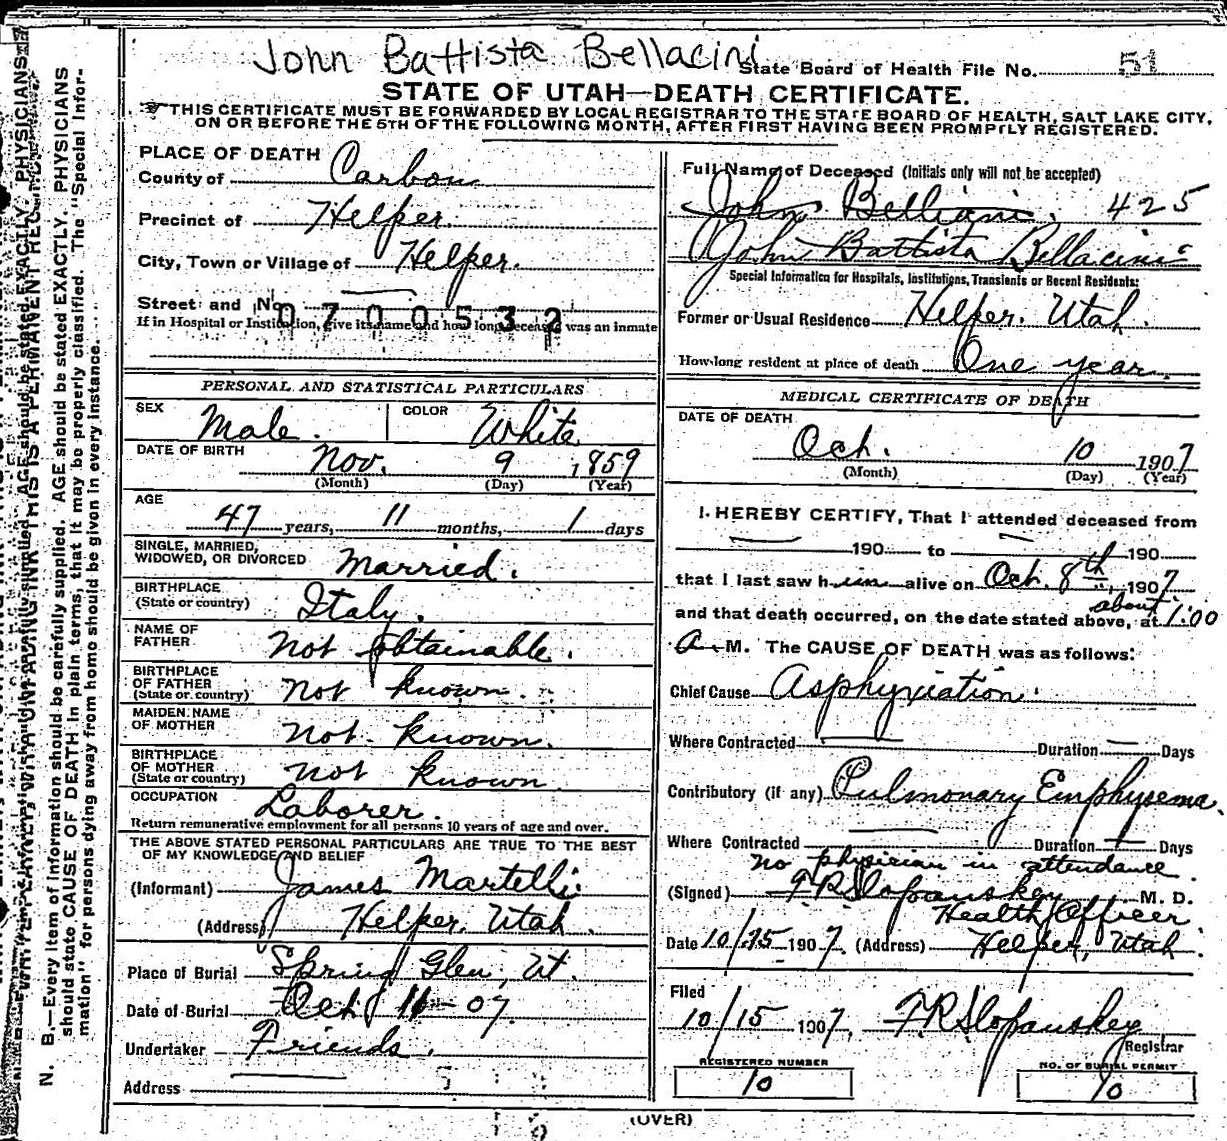 John Battista Bellacini
State Board of Health File No. 51
STATE OF UTAH—DEATH CERTIFICATE.
THIS CERTIFICATE MUST BE FORWARDED BY LOCAL REGISTRAR TO THE STATE BOARD OF HEALTH, SALT LAKE CITY,
ON OR BEFORE THE 5TH OF THE FOLLOWING MONTH, AFTER FIRST HAVING BEEN PROMPTLY REGISTERED.
PLACE OF DEATH
County of Carbon
Precinct of Helper.
City, Town or Village of Helper.
Street and No.
0700532
If in Hospital or Institution, give its name and how long deceased was an inmate
PERSONAL AND STATISTICAL PARTICULARS
SEX Male. COLOR White
DATE OF BIRTH Nov. 9 1859
(Month) (Day) (Year)
AGE 47 years, 11 months, 1 days
SINGLE, MARRIED,
WIDOWED, OR DIVORCED Married.
BIRTHPLACE
(State or country) Italy.
NAME OF
FATHER Not obtainable.
BIRTHPLACE
OF FATHER
(State or country) not known.
MAIDEN NAME
OF MOTHER not known.
BIRTHPLACE
OF MOTHER
(State or country) not known
OCCUPATION Laborer.
Return remunerative employment for all persons 10 years of age and over.
THE ABOVE STATED PERSONAL PARTICULARS ARE TRUE TO THE BEST
OF MY KNOWLEDGE AND BELIEF
(Informant) James Martelli
(Address) Helper, Utah.
Place of Burial Spring Glen, Ut.
Date of Burial Oct 11-07.
Undertaker Friends.
Address
Full Name of Deceased (Initials only will not be accepted)
John Belliani. 425
John Battista Bellacini
Special Information for Hospitals, Institutions, Transients or Recent Residents:
Former or Usual Residence Helper. Utah.
How long resident at place of death One year.
MEDICAL CERTIFICATE OF DEATH
DATE OF DEATH
Oct. 10 1907
(Month) (Day) (Year)
I HEREBY CERTIFY, That I attended deceased from
190 to 190
that I last saw him alive on Oct. 8th, 1907
about
and that death occurred, on the date stated above, at 1:00
A. M. The CAUSE OF DEATH was as follows:
Chief Cause Asphyxiation.
Where Contracted Duration Days
Contributory (if any) Pulmonary Emphysema.
Where Contracted Duration Days
no physician in attendance.
(Signed) F R Slopanskey M. D.
Health Officer
Date 10/15 1907. (Address) Helper, Utah.
Filed
10/15 1907, F R Slopanskey
Registrar
REGISTERED NUMBER
10
NO. OF BURIAL PERMIT
10
(OVER)
N. B.—Every item of information should be carefully supplied. AGE should be stated EXACTLY. PHYSICIANS
should state CAUSE OF DEATH in plain terms, that it may be properly classified. The "Special Infor-
mation" for persons dying away from home should be given in every instance.